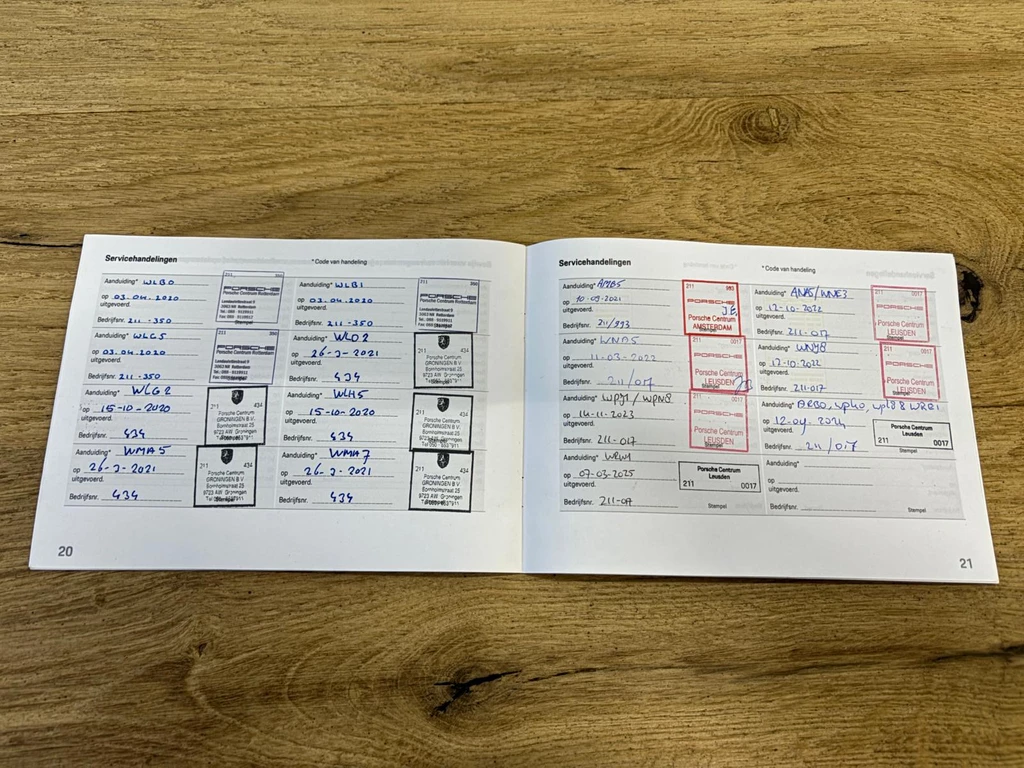 Servicehandelingen
* Code van handeling
Aanduiding* WLB0
op 03.04.2020
uitgevoerd.
Bedrijfsnr. 211-350
211 350
PORSCHE
Porsche Centrum Rotterdam
Stempel
Aanduiding* WLB1
op 03.04.2020
uitgevoerd.
Bedrijfsnr. 211-350
211 350
PORSCHE
Porsche Centrum Rotterdam
Stempel
Aanduiding* WLC5
op 03.04.2020
uitgevoerd.
Bedrijfsnr. 211-350
211 350
PORSCHE
Porsche Centrum Rotterdam
Stempel
Aanduiding* WLD2
op 26-2-2021
uitgevoerd.
Bedrijfsnr. 434
211 434
Porsche Centrum
GRONINGEN B.V.
Bornholmstraat 25
9723 AW Groningen
Aanduiding* WLG2
op 15-10-2020
uitgevoerd.
Bedrijfsnr. 434
211 434
Porsche Centrum
GRONINGEN B.V.
Bornholmstraat 25
9723 AW Groningen
Aanduiding* WLH5
op 15-10-2020
uitgevoerd.
Bedrijfsnr. 434
211 434
Porsche Centrum
GRONINGEN B.V.
Bornholmstraat 25
9723 AW Groningen
Aanduiding* WMA5
op 26-2-2021
uitgevoerd.
Bedrijfsnr. 434
211 434
Porsche Centrum
GRONINGEN B.V.
Bornholmstraat 25
9723 AW Groningen
Aanduiding* WMA7
op 26-2-2021
uitgevoerd.
Bedrijfsnr. 434
211 434
Porsche Centrum
GRONINGEN B.V.
Bornholmstraat 25
9723 AW Groningen
20
Servicehandelingen
* Code van handeling
Aanduiding* AMB5
op 10-09-2021
uitgevoerd.
Bedrijfsnr. 211/993
211 993
PORSCHE
J.E.
Porsche Centrum
AMSTERDAM
Aanduiding* ANA8/WNE3
op 12-10-2022
uitgevoerd.
Bedrijfsnr. 211-017
211 0017
PORSCHE
Porsche Centrum
LEUSDEN
Aanduiding* WNA5
op 11-03-2022
uitgevoerd.
Bedrijfsnr. 211/017
PORSCHE
Porsche Centrum
LEUSDEN
Aanduiding* WNY8
op 12-10-2022
uitgevoerd.
Bedrijfsnr. 211-017
211 0017
PORSCHE
Porsche Centrum
LEUSDEN
Aanduiding* WPJ1/WPN8
op 14-11-2023
uitgevoerd.
Bedrijfsnr. 211-017
211 0017
PORSCHE
Porsche Centrum
LEUSDEN
Aanduiding*
op 12-04-2024
uitgevoerd.
Bedrijfsnr. 211/017
Porsche Centrum
Leusden
211 0017
Stempel
Aanduiding*
op 07-03-2025
uitgevoerd.
Bedrijfsnr. 211-017
Porsche Centrum
Leusden
211 0017
Stempel
Aanduiding*
op
uitgevoerd.
Bedrijfsnr.
Stempel
21